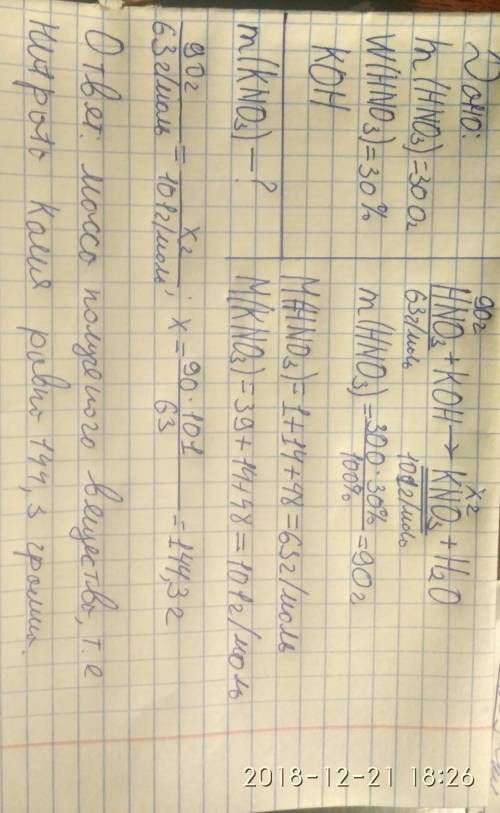 Дано:
m(HNO₃)=300г
W(HNO₃)=30%
KOH
m(KNO₃)-?
90г xг
HNO₃ + KOH → KNO₃ + H₂O
63г/моль 101г/моль
m(HNO₃)= 300·30% / 100% = 90г
M(HNO₃)= 1+14+48 = 63г/моль
M(KNO₃)= 39+14+48 = 101г/моль
90г / 63г/моль = xг / 101г/моль; x = 90·101 / 63 = 144,3г
Ответ: масса полученого вещества, т.е
нитрата калия равна 144,3 грамма.
2018-12-21 18:26